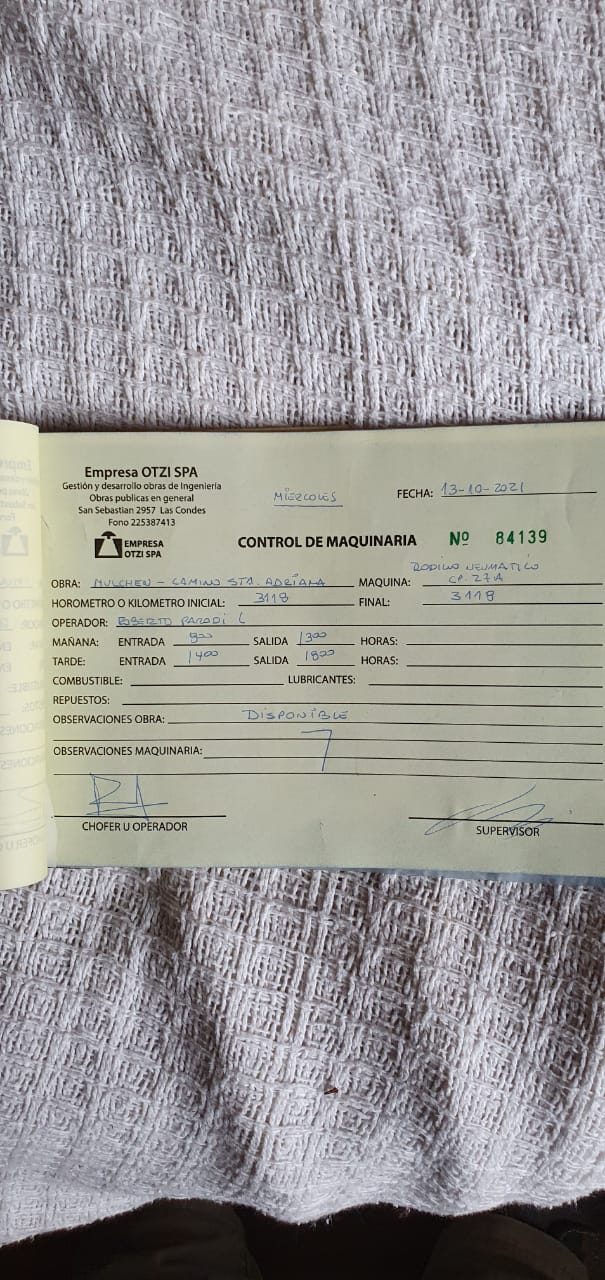 Empresa OTZI SPA
Gestión y desarrollo obras de Ingeniería
Obras publicas en general
San Sebastian 2957 Las Condes
Fono 225387413
EMPRESA
OTZI SPA
MIERCOLES
FECHA: 13-10-2021
CONTROL DE MAQUINARIA Nº 84139
OBRA: MULCHEN - CAMINO STA. ADRIANA MAQUINA: RODILLO NEUMATICO
CP. 27A
HOROMETRO O KILOMETRO INICIAL: 3118 FINAL: 3118
OPERADOR: ROBERTO PARODI L
MAÑANA: ENTRADA 800 SALIDA 1300 HORAS:
TARDE: ENTRADA 1400 SALIDA 1800 HORAS:
COMBUSTIBLE: LUBRICANTES:
REPUESTOS:
OBSERVACIONES OBRA: DISPONIBLE
OBSERVACIONES MAQUINARIA:
CHOFER U OPERADOR SUPERVISOR